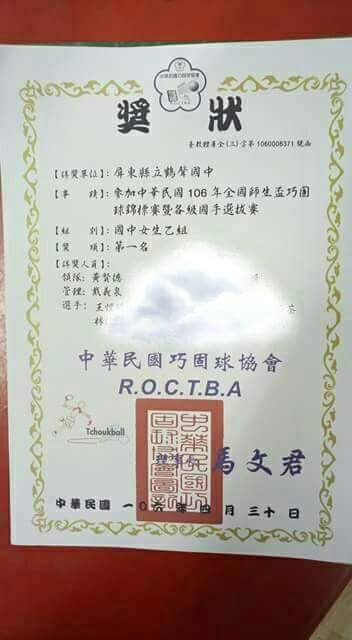 獎狀
臺教體署全(三)字第1060008371號函
【得獎單位】:屏東縣立鶴聲國中
【事蹟】:參加中華民國106年全國師生盃巧固
球錦標賽暨各級國手選拔賽
【組別】:國中女生乙組
【獎項】:第一名
【得獎人員】:
領隊:黃賢德
管理:戴義泉
選手:王
林
中華民國巧固球協會
R.O.C.T.B.A
Tchoukball
理事長 馬文君
中華民國一○六年四月三十日